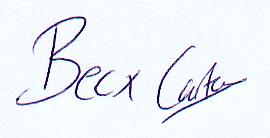 Becx Carter